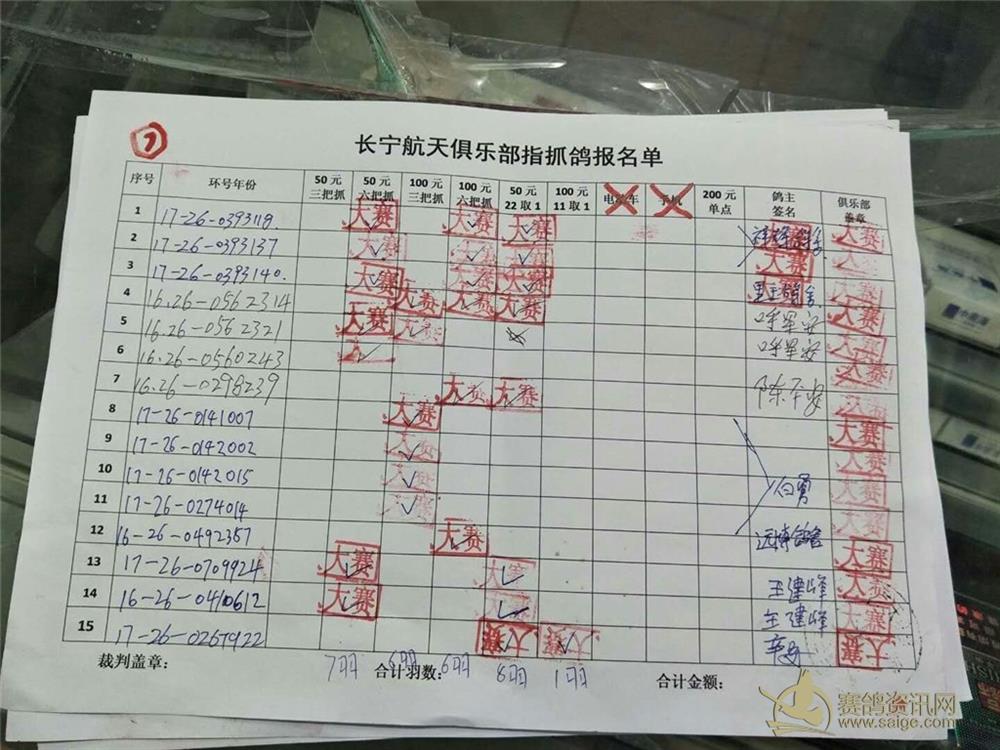 7
长宁航天俱乐部指抓鸽报名单
序号 环号年份 50元三把抓 50元六把抓 100元三把抓 100元六把抓 50元22取1 100元11取1 电动车 手机 200元单点 鸽主签名 俱乐部盖章
1 17-26-0393118. 大赛 大赛 大赛 大赛
2 17-26-0393137 大赛
3 17-26-0393140. 大赛 大赛 大赛
4 16.26-0562314 大赛 大赛 大赛 大赛
5 16.26-0562321 大赛
6 16.26-0560243 大赛
7 16.26-0298239 大赛 大赛
8 17-26-0141007 大赛 大赛
9 17-26-0142002 大赛 大赛
10 17-26-0142015 大赛 大赛
11 17-26-0274014 大赛
12 16-26-0492357 大赛 大赛
13 17-26-0709924 大赛 大赛 王建峰 大赛
14 16-26-0410612 大赛 王建峰 大赛
15 17-26-0267922 大赛 大赛 大赛
裁判盖章: 7羽 6羽 合计羽数: 6羽 8羽 1羽 合计金额:
赛鸽资讯网
www.saige.com